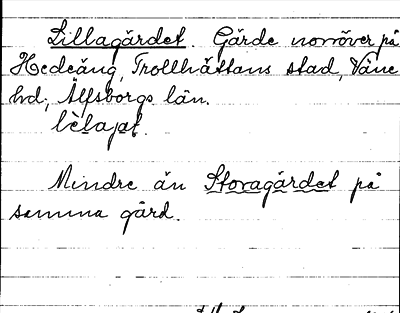 Lillagärdet. Gärde norröver på
Hedeäng, Trollhättans stad, Väne
hd, Älfsborgs län.
Mindre än Storagärdet på
samma gård.